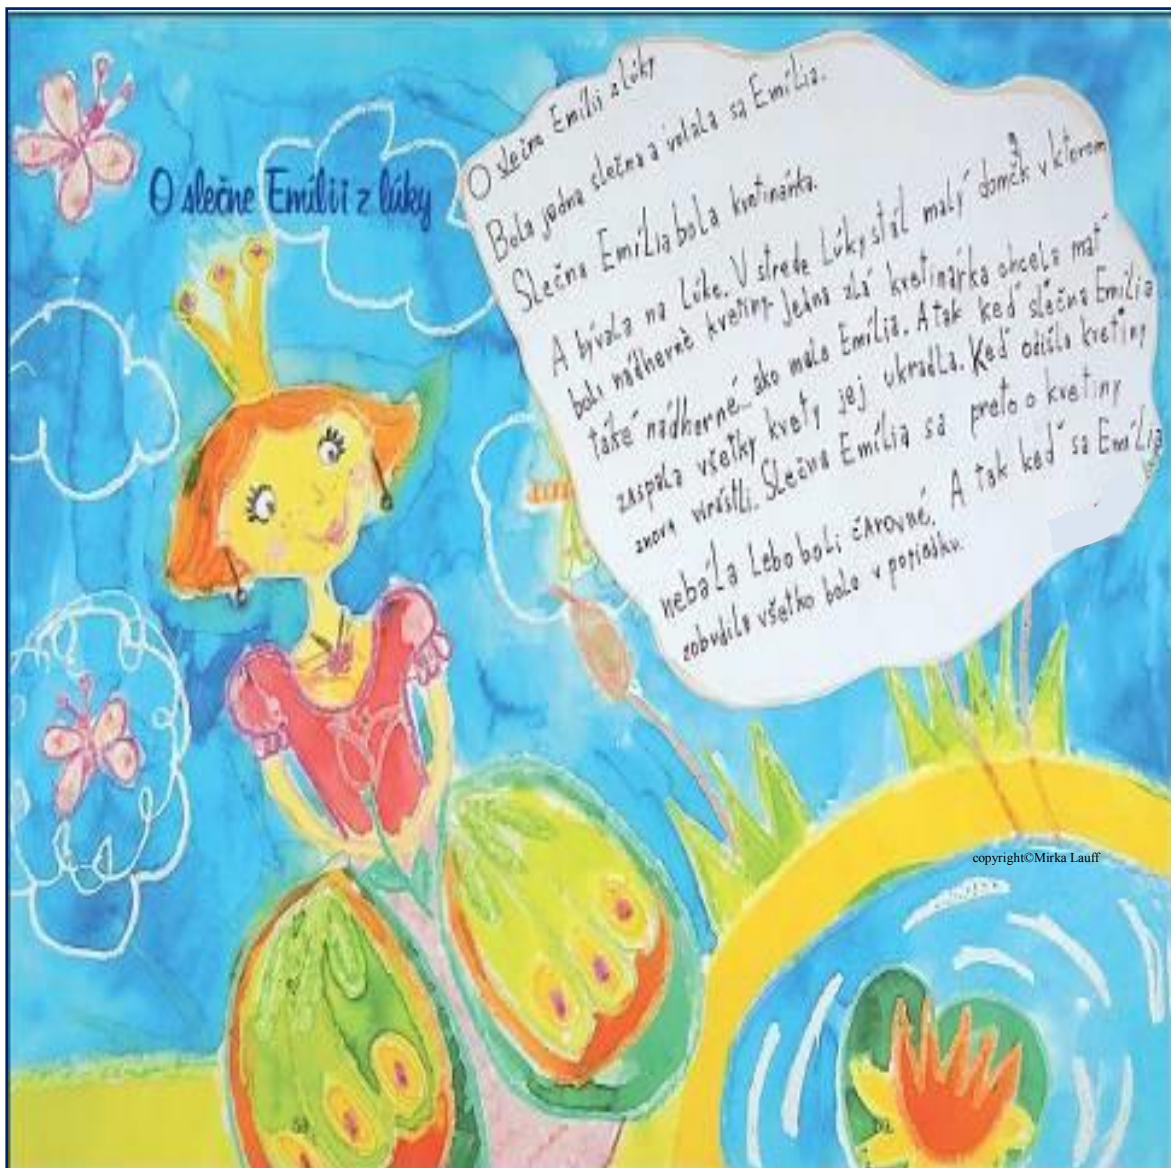 O slečne Emílii z lúky
O slečne Emílii z lúky
Bola jedna slečna a volala sa Emília.
Slečna Emília bola kvetinárka.
A bývala na lúke. V strede lúky stál malý domček v kterom
boli nádherné kvetiny. Jedna zlá kvetinárka chcela mať
také nádherné ako mala Emília. A tak keď slečna Emília
zaspala všetky kvety jej ukradla. Keď odišla kvetiny
znova virástli. Slečna Emília sa preto o kvetiny
nebála lebo boli čarovné. A tak keď sa Emília
zobudila všetko bolo v poriadku.
copyright©Mirka Lauff